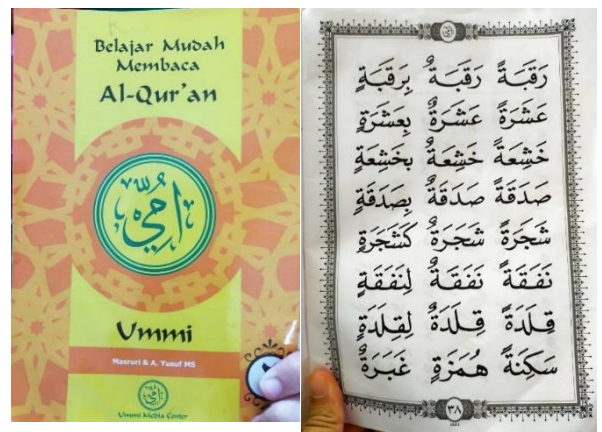 Belajar Mudah
Membaca
Al-Qur'an
امي
Ummi
Masruri & A. Yusuf MS
Ummi Media Center
رَقَبَةً رَقَبَةٌ بِرَقَبَةٍ
عَشَرَةً عَشَرَةٌ بِعَشَرَةٍ
خَشِعَةً خَشِعَةٌ بِخَشِعَةٍ
صَدَقَةً صَدَقَةٌ بِصَدَقَةٍ
شَجَرَةً شَجَرَةٌ كَشَجَرَةٍ
نَفَقَةً نَفَقَةٌ لِنَفَقَةٍ
قِلَدَةً قِلَدَةٌ لِقِلَدَةٍ
سَكِنَةً هُمَزَةٍ غَبَرَةٌ
٣٨